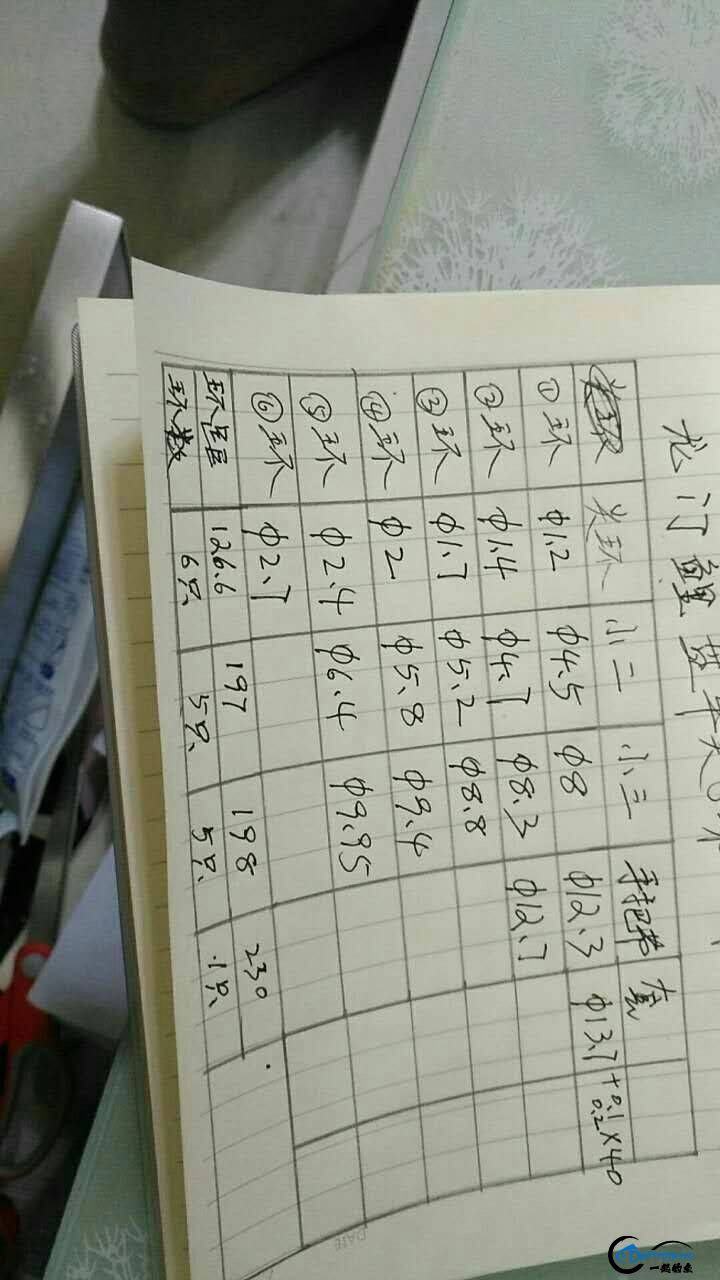 龙门鲤
类环 小二 小三 手把节 套
①环 φ1.2 φ4.5 φ8 φ12.3 φ13.7 +0.1 0.2 ×40
②环 φ1.4 φ4.7 φ8.3 φ12.7
③环 φ1.7 φ5.2 φ8.8
④环 φ2 φ5.8 φ9.4
⑤环 φ2.4 φ6.4 φ9.95
⑥环 φ2.7
环星 126.6 197 198 230
环数 6只 5只 5只 1只
DATE
一起钓鱼